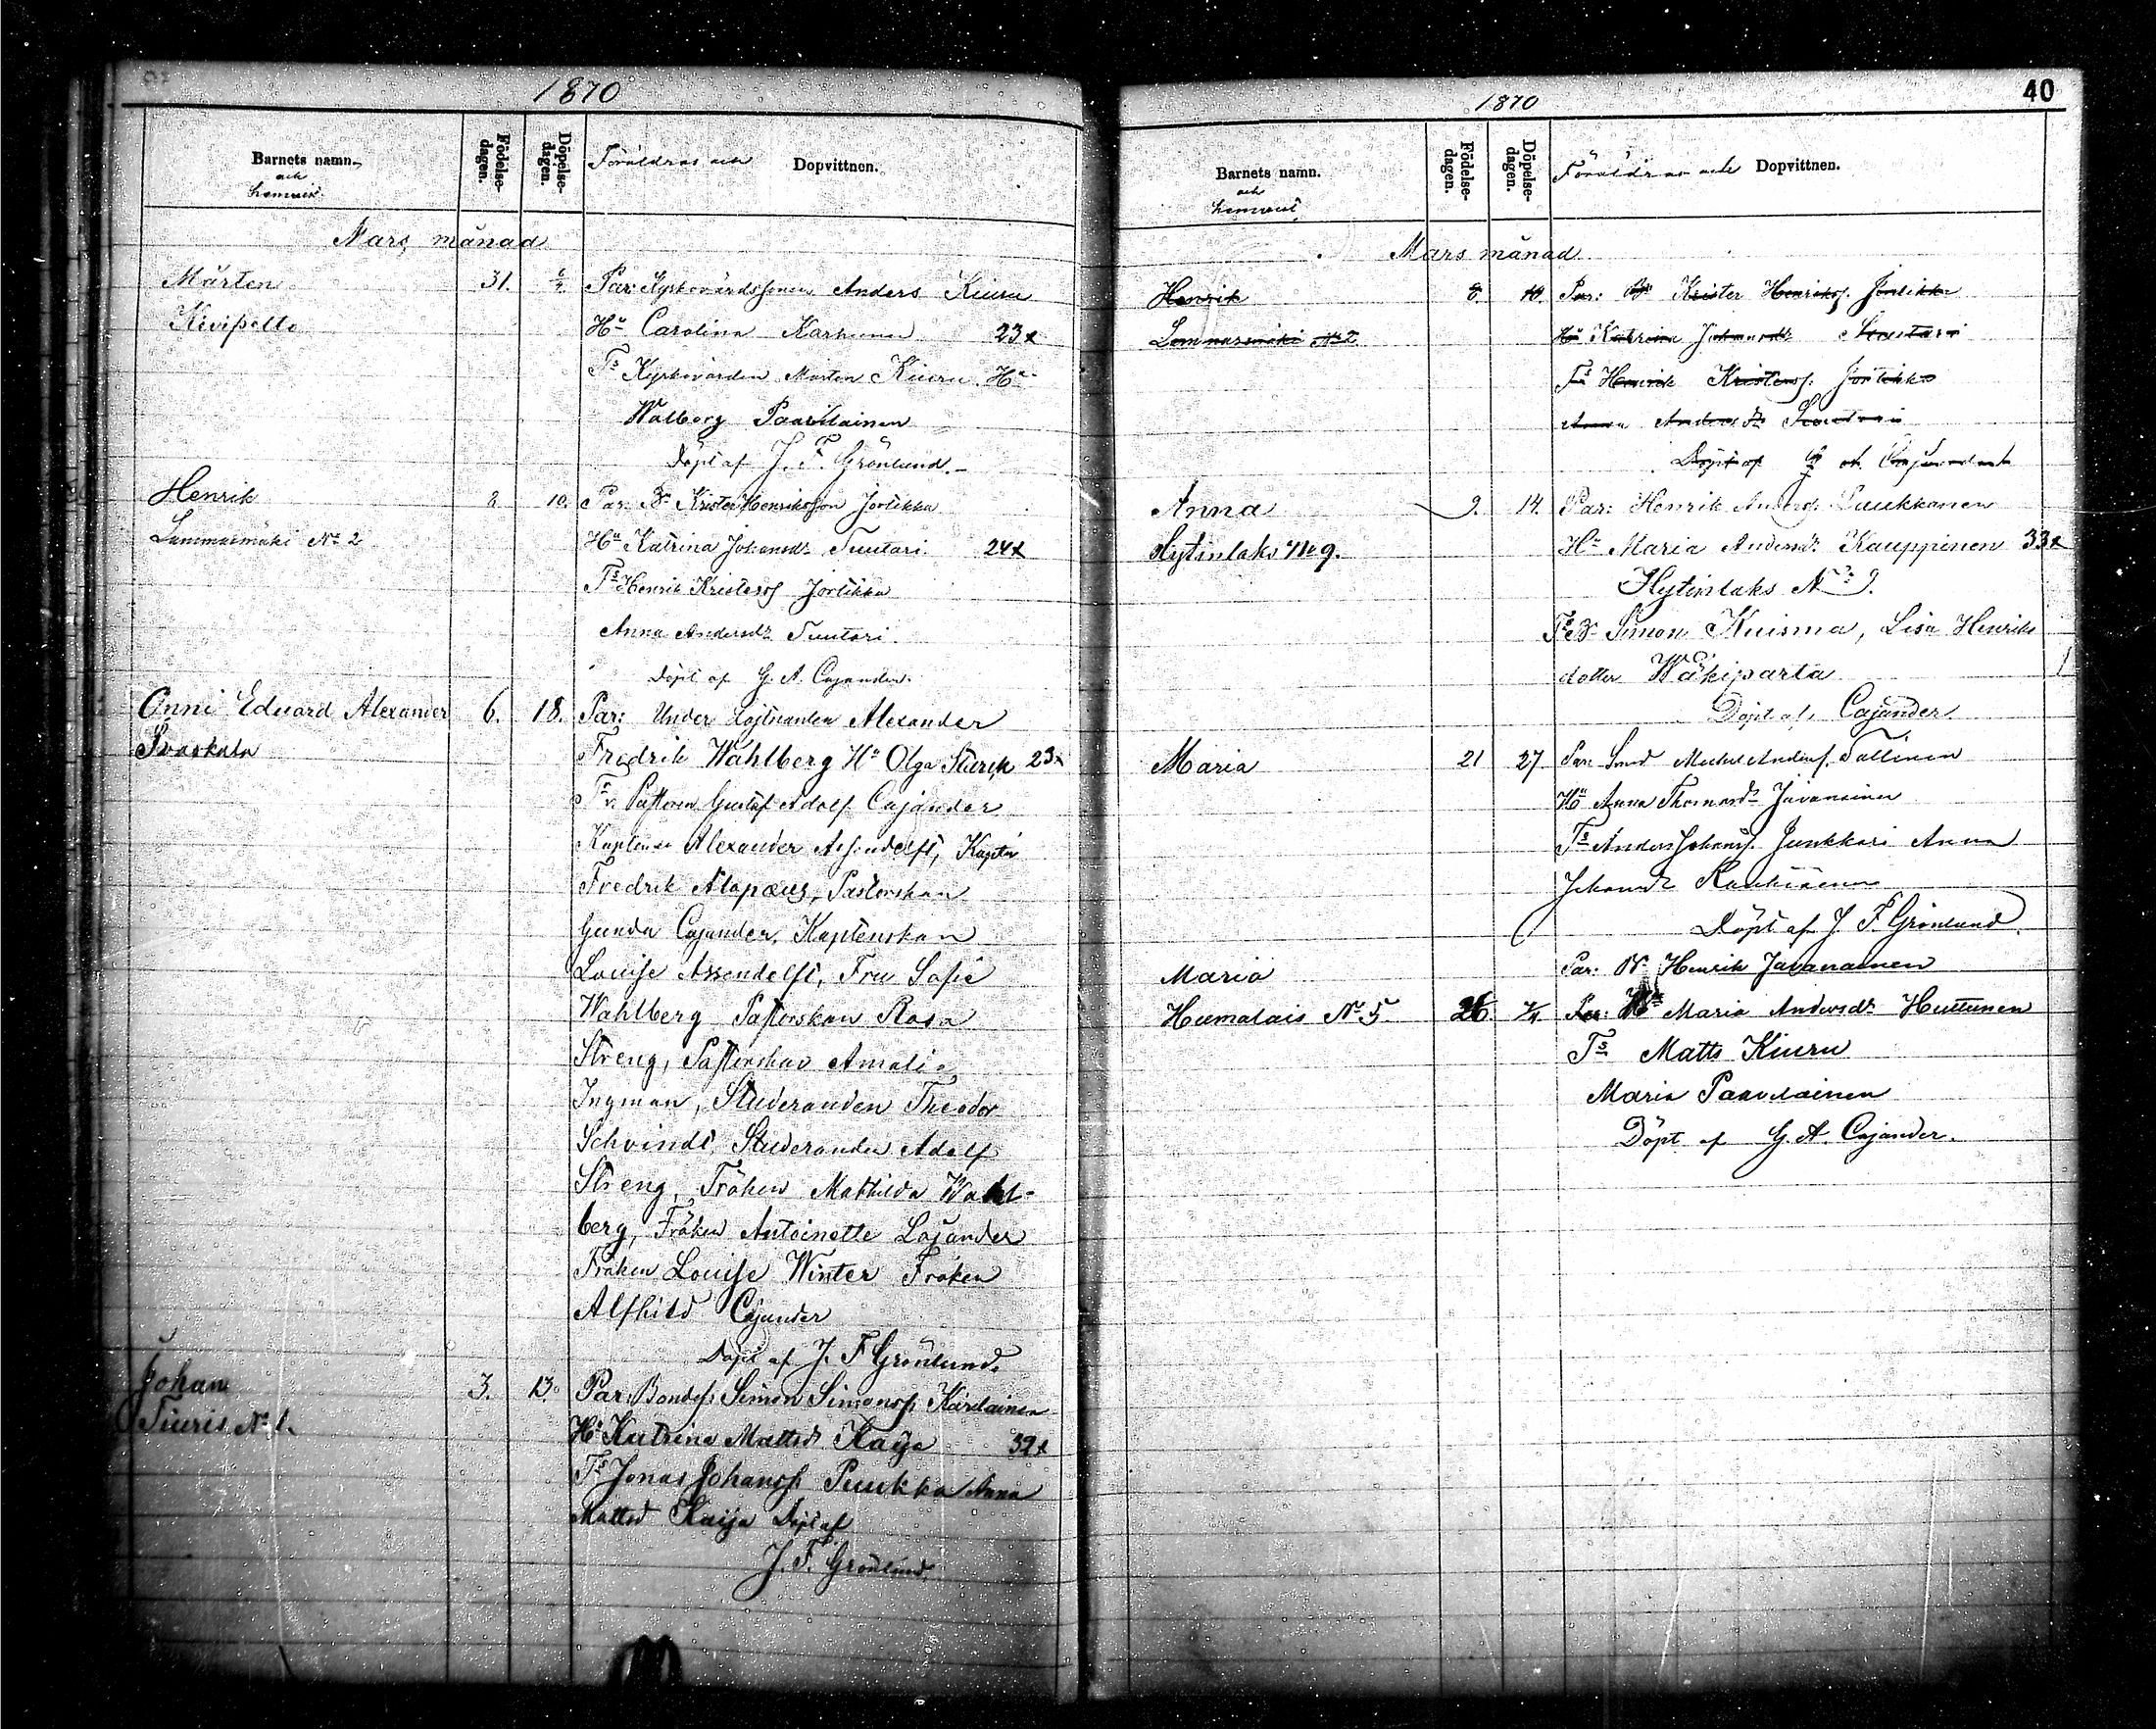 1870
Barnets namn.
och
hemvist.
Födelse-
dagen.
Döpelse-
dagen.
Föräldrar och Dopvittnen.
Mars månad
Mårten 31. Par: Kyrkovärdssonen Anders Kiuru
Kivipelto Hu Carolina Karhunen 23x
Ts Kyrkovärden Mårten Kiuru Hu
Walborg Paavilainen
Döpt af J. F. Grönlund.
Henrik 8 10. Par: Bn Krister Henriksson Jortikka
Lammasmäki No 2 Hu Katrina Johansdr Tuutari 24x
Ts Henrik Kristerss Jortikka
Anna Andersdr Tuutari.
Döpt af G. A. Cajander.
Onni Eduard Alexander 6. 18. Par: Under Löjtnanten Alexander
Fredrik Wahlberg Hu Olga 23x
Ts Pastoren Gustaf Adolf Cajander
Kaptenen Alexander Assendelft, Kapten
Fredrik Alopæus, Pastorskan
Gunda Cajander, Kaptenskan
Louise Assendelft, Fru Sofie
Wahlberg Pastorskan Rosa
Streng, Pastorskan Amalie
Ingman, Studeranden Theodor
Schvindt, Studeranden Adolf
Streng, Fröken Mathilda Wahl-
berg, Fröken Antoinette Cajander
Fröken Louise Winter Fröken
Alfhild Cajander
Döpt af J. F. Grönlund.
Johan 3. 13. Par: Bondes. Simon Simonss. Kärilainen
Tiuris No 1. Hu Katrina Mattsdr Kaija 39x
Ts Jonas Johanss. Puukka Anna
Mattsd Kaija Döpt af
J. F. Grönlund.
1870
40
Barnets namn.
och
hemvist
Födelse-
dagen.
Döpelse-
dagen.
Föräldrar och Dopvittnen.
Mars månad
Henrik 8. 10. Par: Bn Krister Henrikss. Jortikka
Lammasmäki No 2 Hu Katrina Johansdr Tuutari
Ts Henrik Kristerss. Jortikka
Anna Andersdr Tuutari
Döpt af G. A. Cajander
Anna 9. 14. Par: Henrik Anderss. Luukkanen
Hytinlaks No 9. Hu Maria Andersdr Kauppinen 33x
Hytinlaks No 9.
Ts Bn Simon Kuisma, Lisa Henriks
dotter Wäkiparta
Döpt af Cajander
Maria 21 27 Par: Michel Anderss. Tallinen
Hu Anna Thomasdr Javanainen
Ts Anders Johanss. Junkkari Anna
Johansdr
Döpt af J. F. Grönlund.
Maria Par: Bn Henrik Javanainen
Humalais No 5. 26. Hu Maria Andersdr Huttunen
Ts Matts Kiuru
Maria Paavilainen
Döpt af G. A. Cajander.